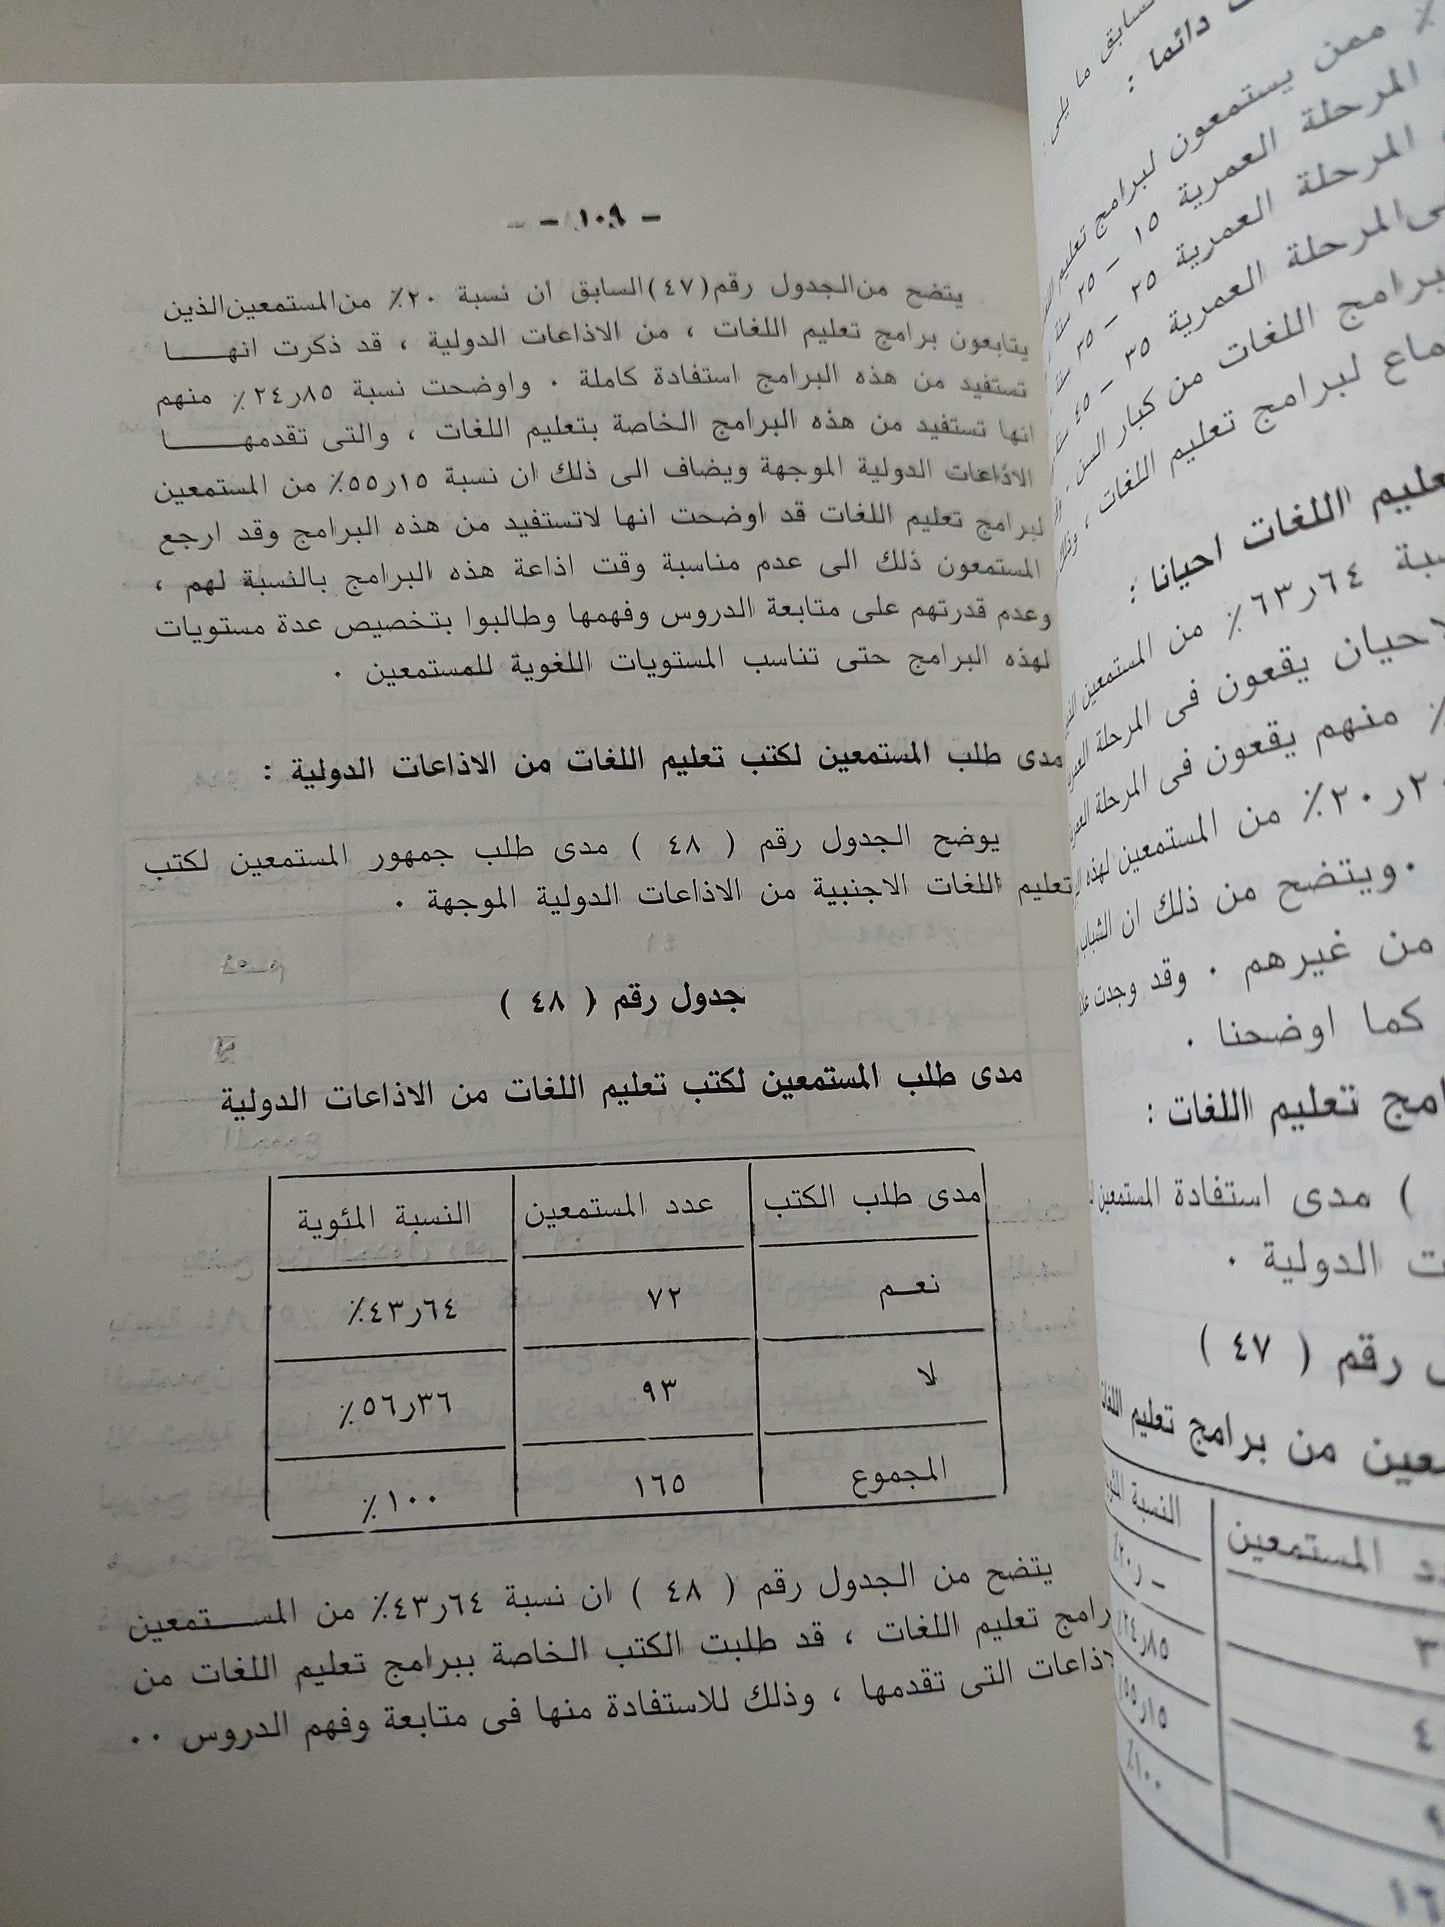 - ١٠٩ -
يتضح من الجدول رقم (٤٧) السابق أن نسبة ٢٠٪ من المستمعين الذين
يتابعون برامج تعليم اللغات ، من الاذاعات الدولية ، قد ذكرت انهـــــا
تستفيد من هذه البرامج استفادة كاملة . واوضحت نسبة ٢٤ر٨٥٪ منهم
انها تستفيد من هذه البرامج الخاصة بتعليم اللغات ، والتى تقدمهـــــا
الاذاعات الدولية الموجهة ويضاف الى ذلك ان نسبة ٥٥ر١٥٪ من المستمعين
لبرامج تعليم اللغات قد اوضحت انها لاتستفيد من هذه البرامج وقد ارجع
المستمعون ذلك الى عدم مناسبة وقت اذاعة هذه البرامج بالنسبة لهم ،
وعدم قدرتهم على متابعة الدروس وفهمها وطالبوا بتخصيص عدة مستويات
لهذه البرامج حتى تناسب المستويات اللغوية للمستمعين .
مدى طلب المستمعين لكتب تعليم اللغات من الاذاعات الدولية :
يوضح الجدول رقم ( ٤٨ ) مدى طلب جمهور المستمعين لكتب
تعليم اللغات الاجنبية من الاذاعات الدولية الموجهة .
جدول رقم ( ٤٨ )
مدى طلب المستمعين لكتب تعليم اللغات من الاذاعات الدولية
مدى طلب الكتب عدد المستمعين النسبة المئوية
نعـم ٧٢ ٤٣ر٦٤٪
لا ٩٣ ٥٦ر٣٦٪
المجموع ١٦٥ ١٠٠٪
يتضح من الجدول رقم ( ٤٨ ) ان نسبة ٤٣ر٦٤٪ من المســـتمعين
رامج تعليم اللغات ، قد طلبت الكتب الخاصة ببرامج تعليم اللغات من
لاذاعات التى تقدمها ، وذلك للاستفادة منها فى متابعة وفهم الدروس ..
دائما :
٪ ممن يستمعون لبرامج تعليم
المرحلة العمرية ١٥ – ٢٥
المرحلة العمرية ٢٥ – ٣٥
المرحلة العمرية ٣٥ – ٤٥
برامج اللغات من كبار السن
لبرامج تعليم اللغات ،
اللغات احيانا :
٦٣ر٦٤٪ من المستمعين
يقعون فى المرحلة
٪ منهم يقعون فى المرحلة
٪ من المستمعين لهذه
. ويتضح من ذلك ان الشباب
من غيرهم . وقد وجدت
كما اوضحنا .
تعليم اللغات :
) مدى استفادة المستمعين
الدولية .
رقم ( ٤٧ )
من برامج تعليم
المستمعين النسبة
٢٠ر-٪
٢٤ر٨٥٪
٥٥ر١٥٪
١٠٠٪